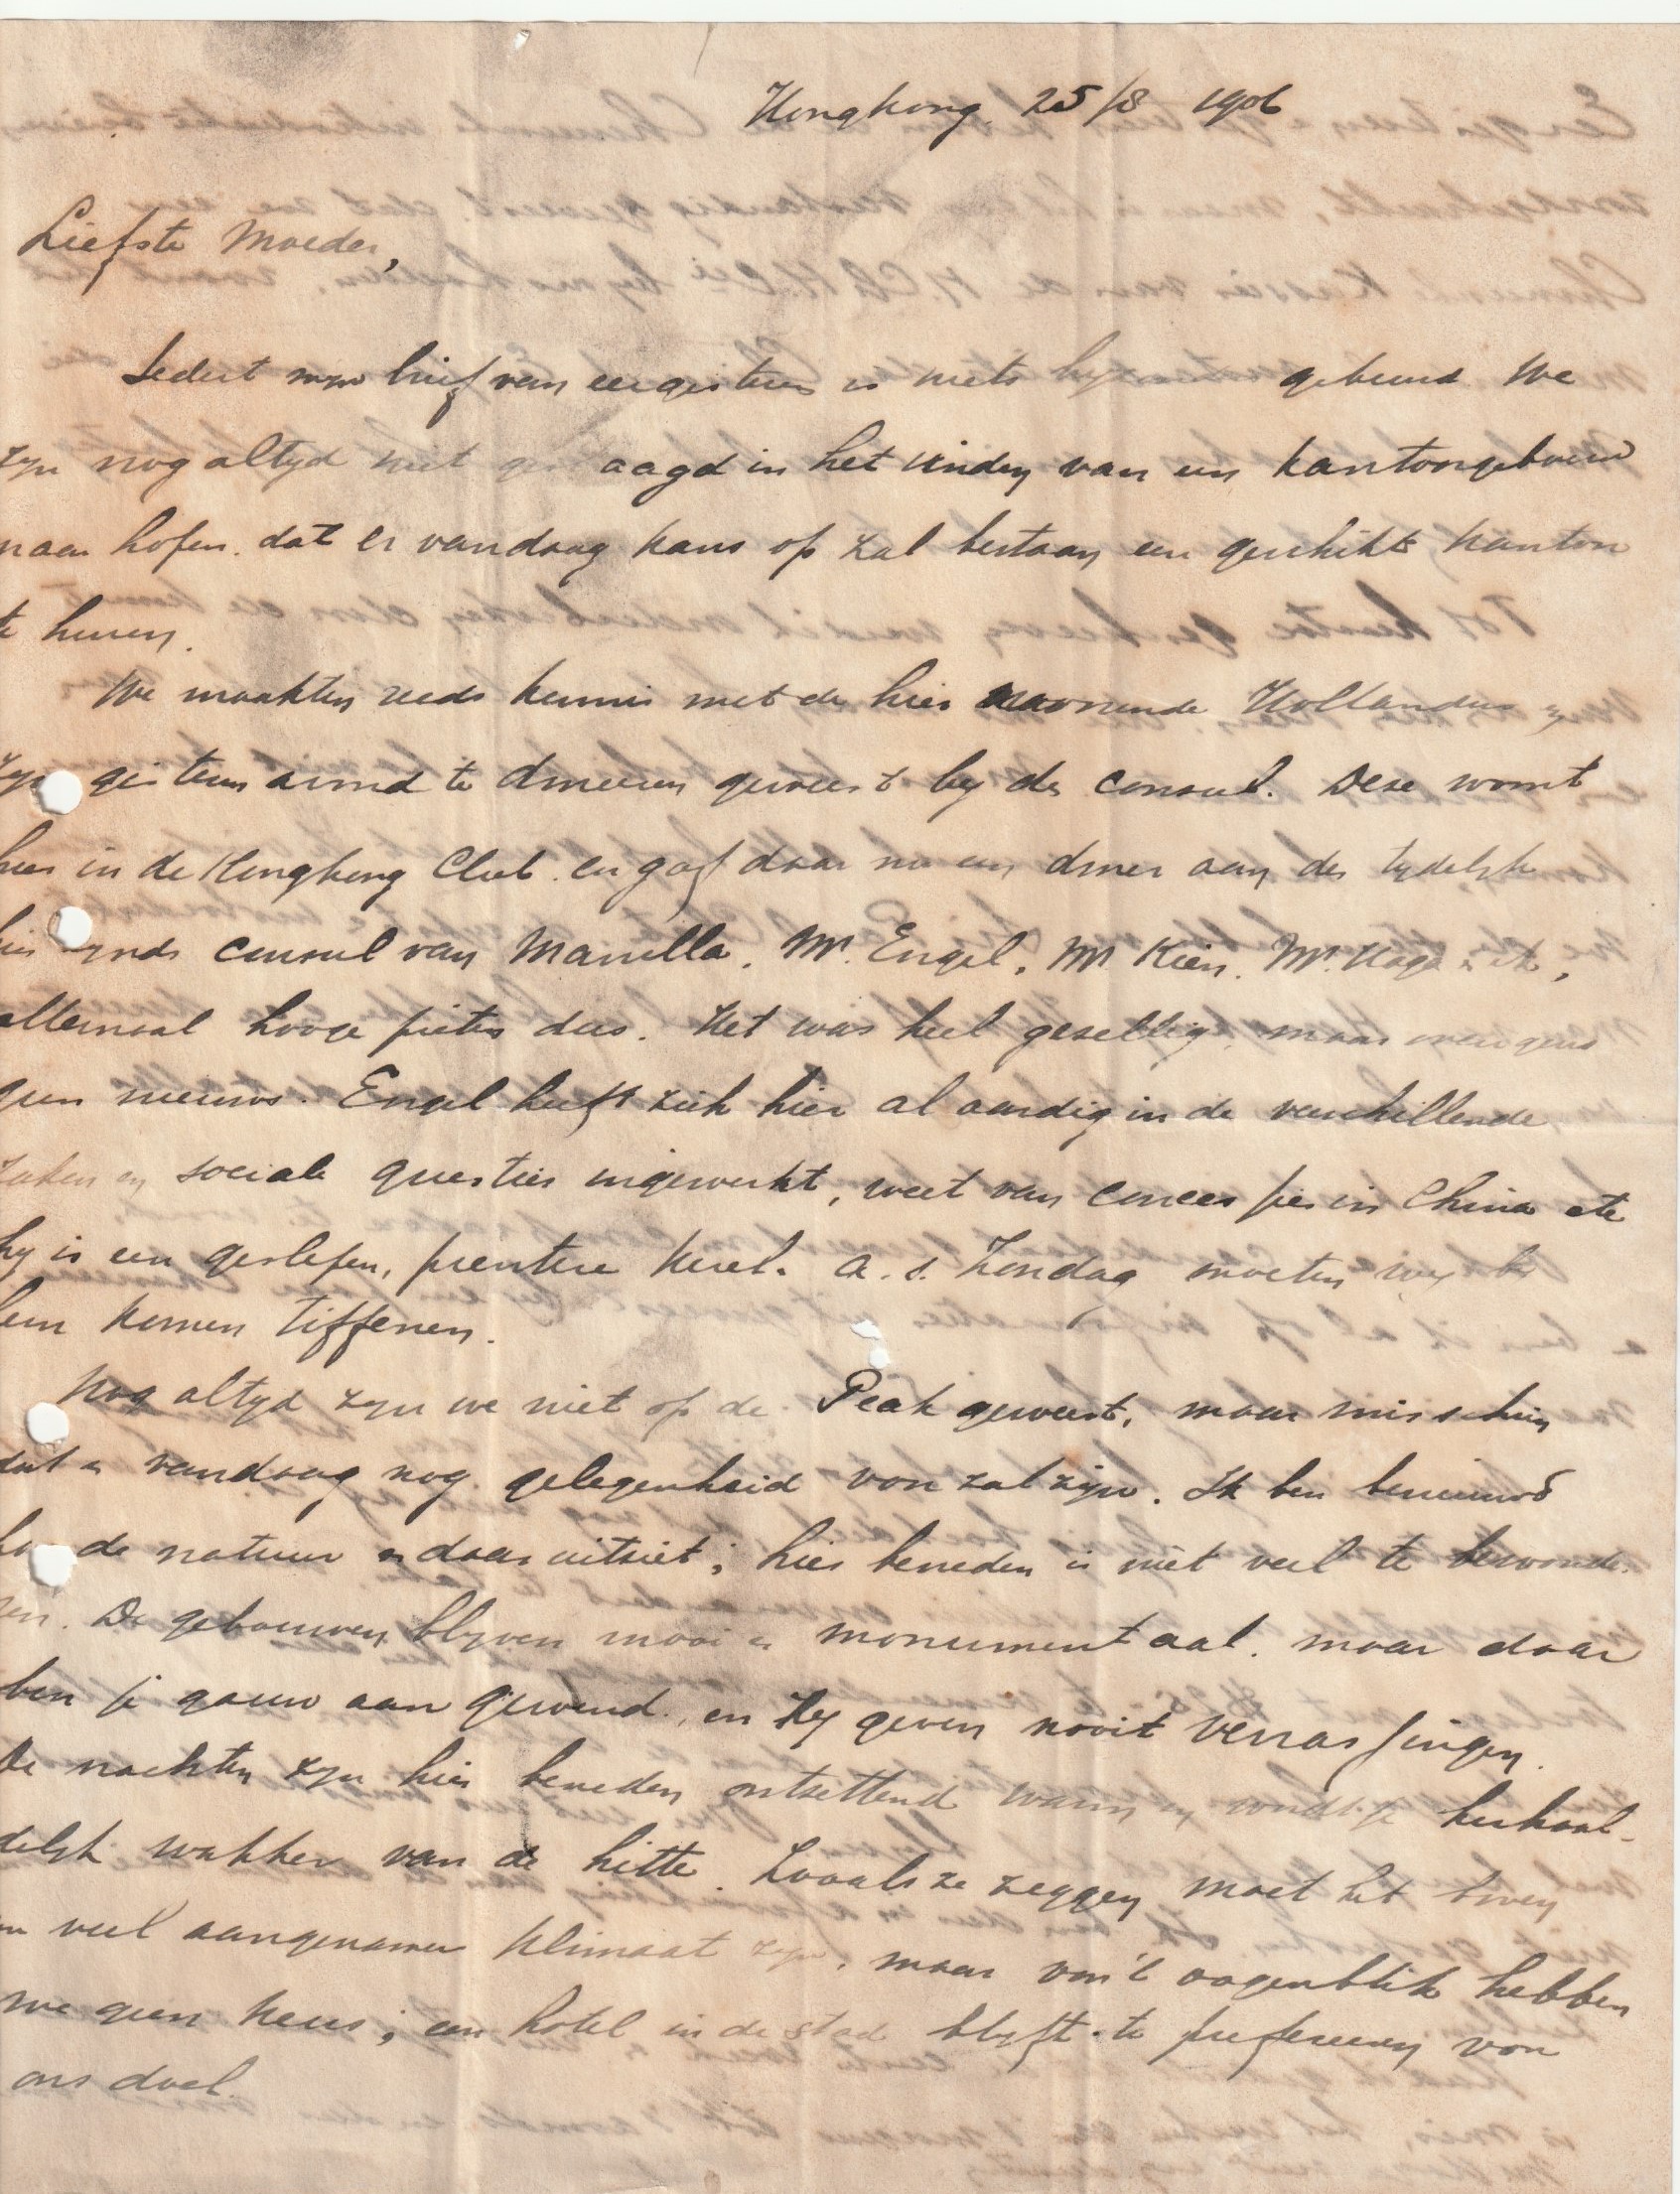 Hongkong, 25/8 1906
Liefste Moeder,
Sedert mijn brief van eergisteren is niets gebeurd. We
zijn nog altijd niet ge aagd in het vinden van een kantoorgebouw
maar hopen dat er vandaag kans op zal bestaan een geschikt kantoor
te huren.
We maakten reeds kennis met de hier wonende Hollanders en
zijn gisteren avond te dineeren geweest bij den consul. Deze woont
hier in de Hongkong Club en gaf daar nu een diner aan den tijdelijk
hier zijnde consul van Manilla, Mr. Engel, Mr Kien, Mr.
allemaal hooge pieten dus. Het was heel gezellig, maar overigens
geen nieuws. Engel heeft zich hier al aardig in de verschillende
zaken en sociale questies ingewerkt, weet van concessies in China etc
hij is een geslepen, pientere kerel. a.s. Zondag moeten wij bij
hem komen tiffenen.
Nog altijd zijn we niet op de Peak geweest, maar misschien
dat er vandaag nog gelegenheid voor zal zijn. Ik ben benieuwd
hoe de natuur er daar uitziet; hier beneden is niet veel te bewonde-
ren. De gebouwen blijven mooi en monumentaal, maar daar
ben je gauw aan gewend, en zij geven nooit verrassingen.
De nachten zijn hier beneden ontzettend warm en wordt je herhaal-
delijk wakker van de hitte. Zooals ze zeggen moet het boven
een veel aangenamer klimaat zijn, maar voor 't oogenblik hebben
we geen keus; een hotel in de stad blijft te prefereeren voor
ons doel.